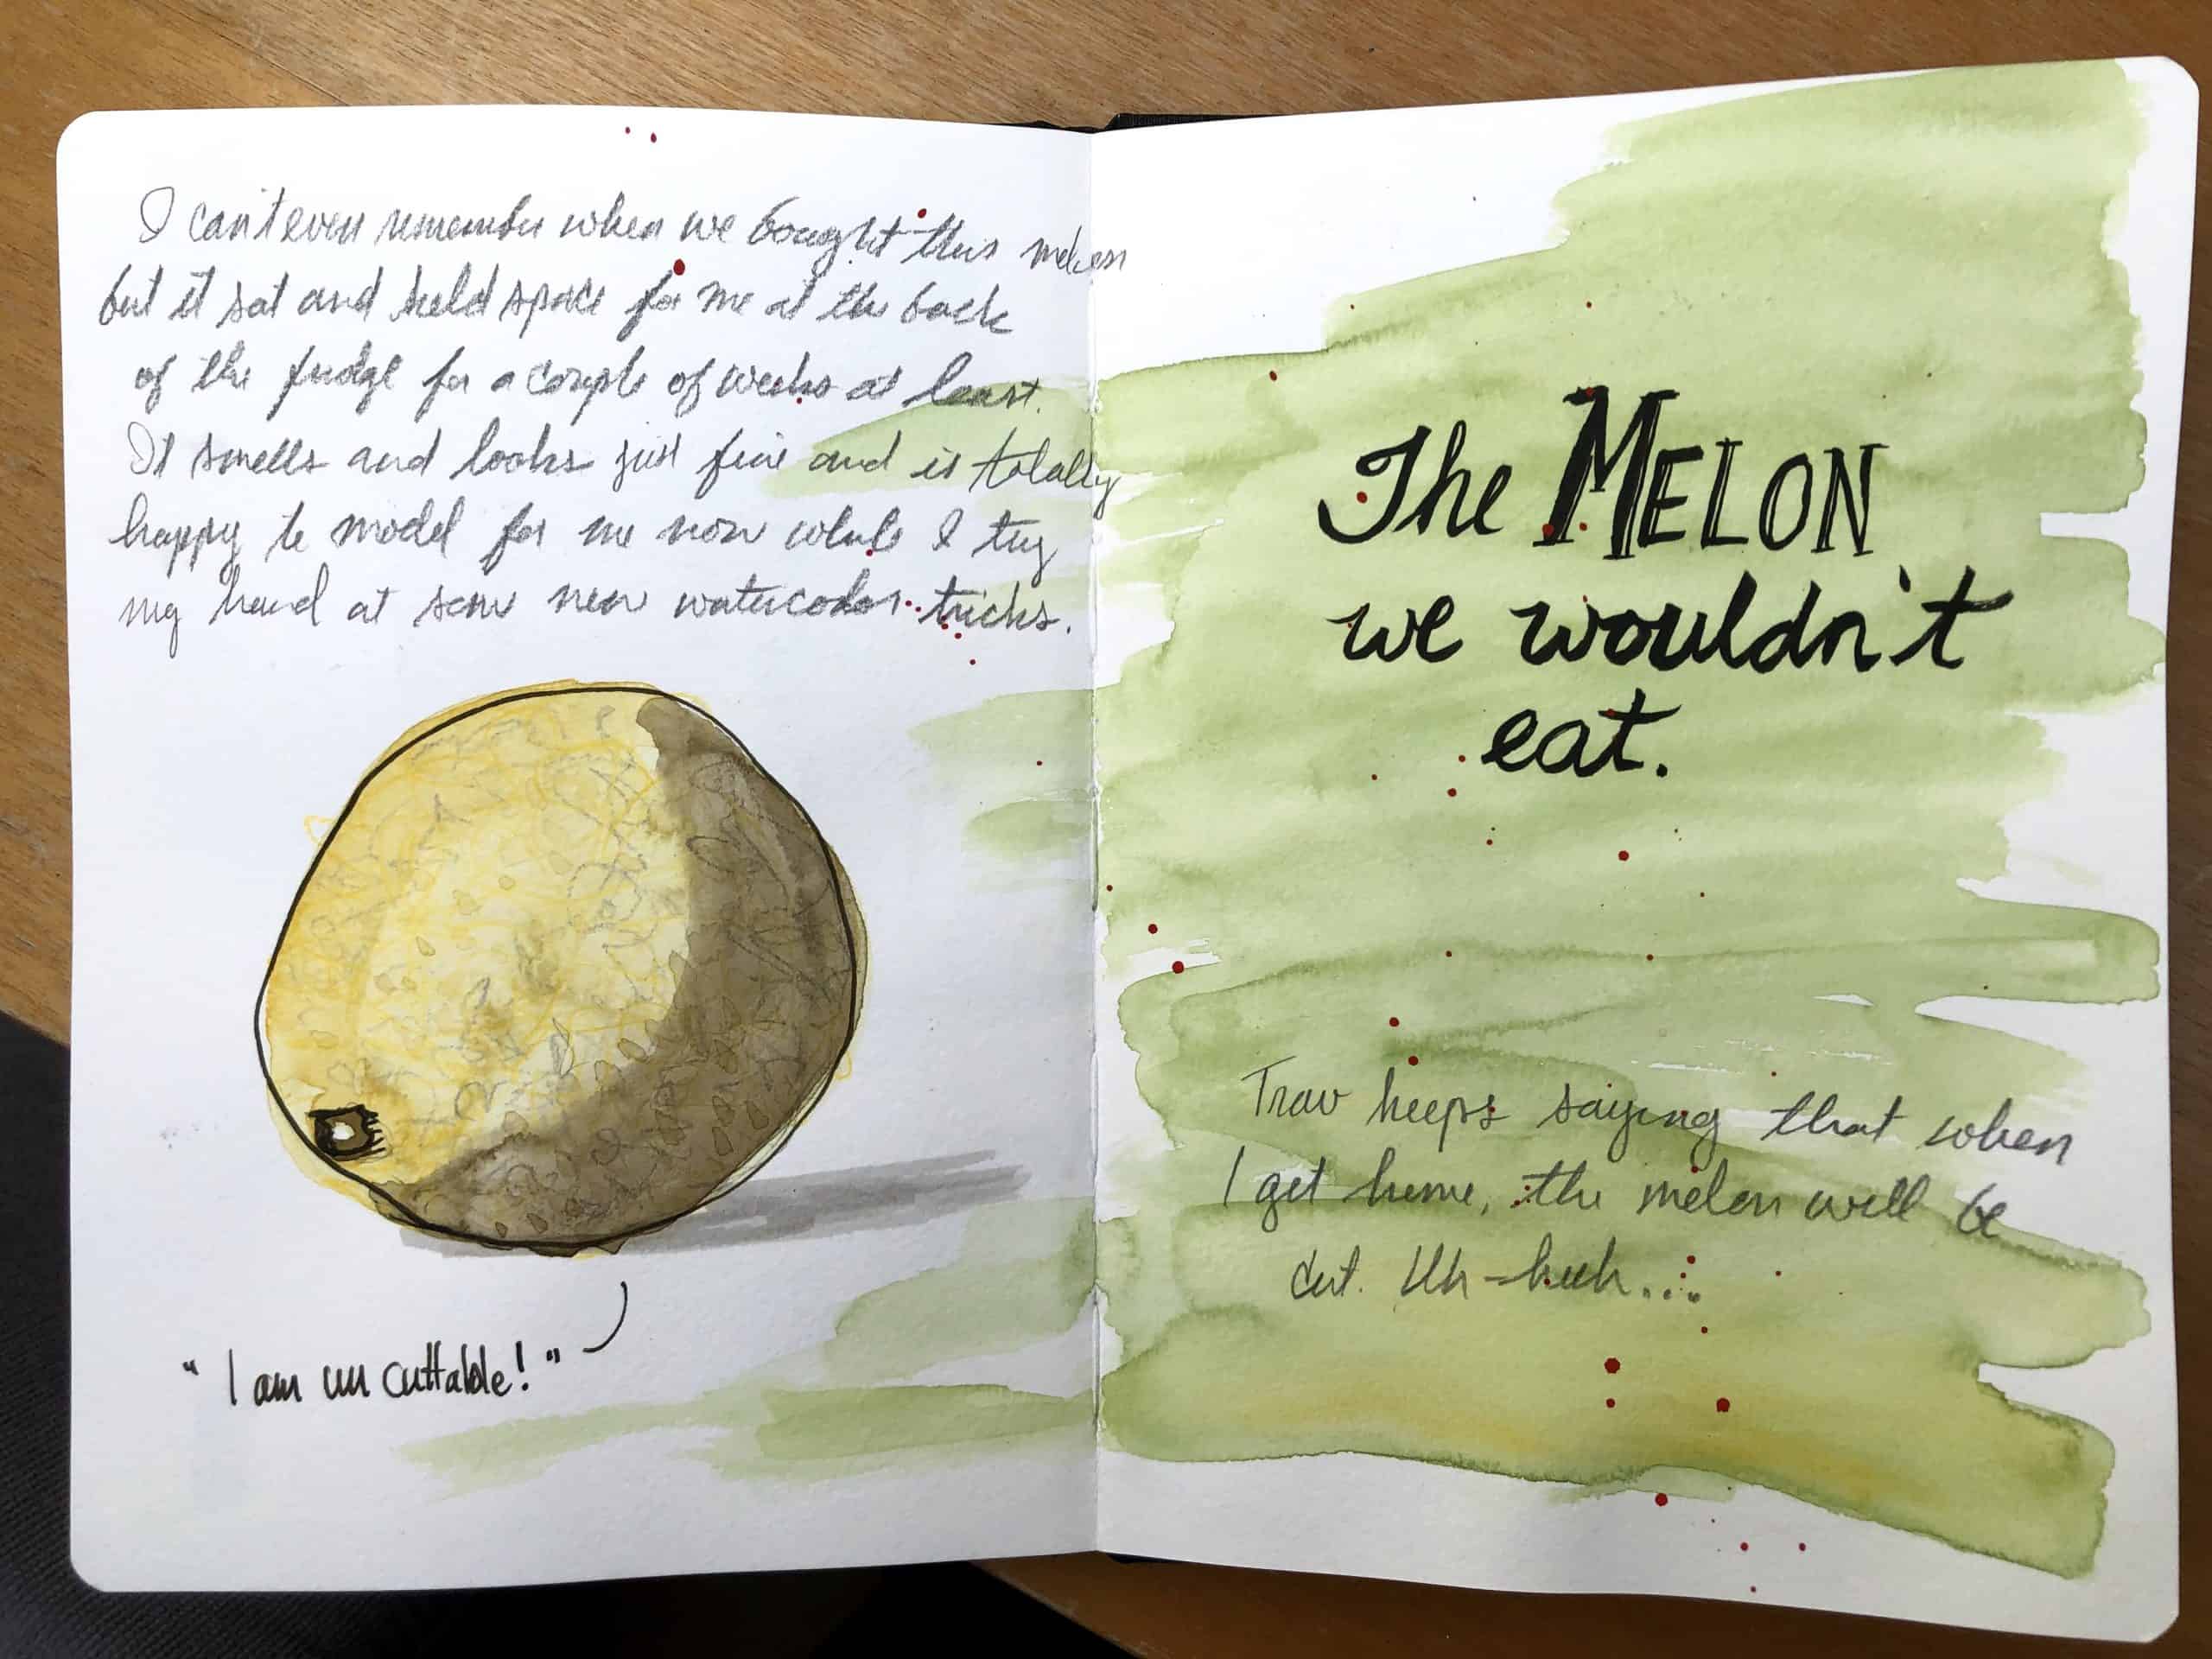 I can't even remember when we bought this melon
but it sat and held space for me at the back
of the fridge for a couple of weeks at least.
It smells and looks just fine and is totally
happy to model for me now while I try
my hand at some new watercolor tricks.
"I am un cuttable!"
The MELON
we wouldn't
eat.
Trav keeps saying that when
I get home, the melon will be
cut. Uh-huh...